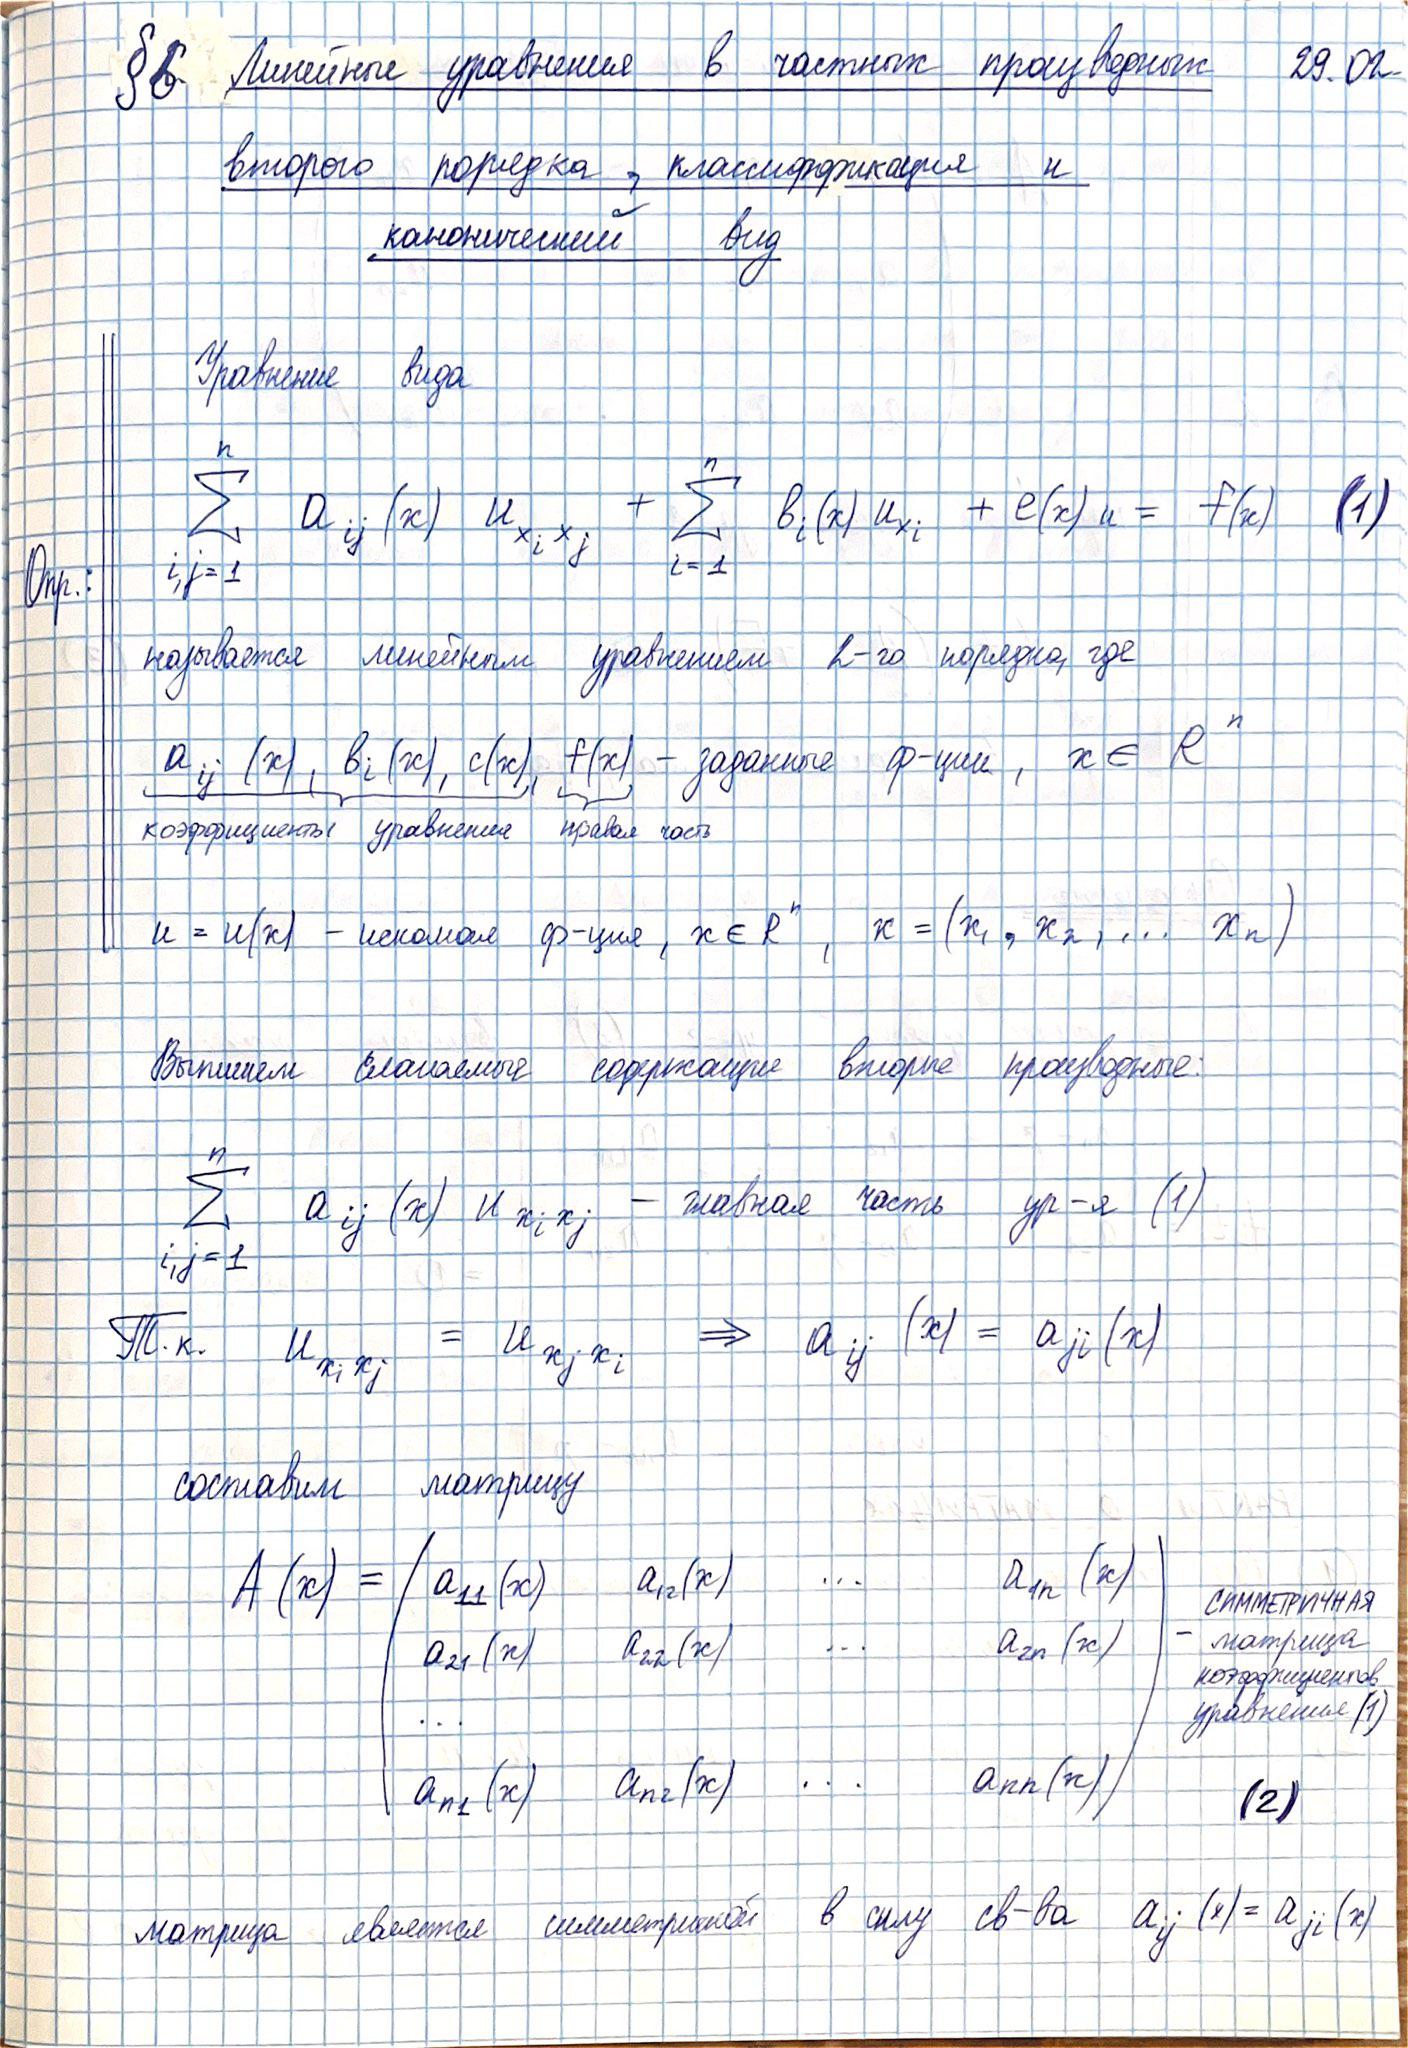 §6 Линейные уравнения в частных производных 29.02.
второго порядка, классификация и
канонический вид
Уравнение вида
n n
∑ a_ij (x) u_{x_i x_j} + ∑ b_i(x) u_{x_i} + c(x) u = f(x) (1)
i,j=1 i=1
Опр.:
называется линейным уравнением 2-го порядка, где
a_ij (x), b_i(x), c(x), f(x) – заданные ф-ции, x ∈ R^n
коэффициенты уравнения правая часть
u = u(x) – искомая ф-ция, x ∈ R^n, x = (x_1, x_2, ... x_n)
Выпишем слагаемые содержащие вторые производные:
n
∑ a_ij (x) u_{x_i x_j} – главная часть ур-я (1)
i,j=1
Т.к. u_{x_i x_j} = u_{x_j x_i} ⇒ a_ij (x) = a_ji (x)
составим матрицу
A(x) = ( a_11(x) a_12(x) ... a_1n(x)
a_21(x) a_22(x) ... a_2n(x)
...
a_n1(x) a_n2(x) ... a_nn(x) )
– СИММЕТРИЧНАЯ
матрица
коэффициентов
уравнения (1)
(2)
матрица является симметричной в силу св-ва a_ij (x) = a_ji (x)